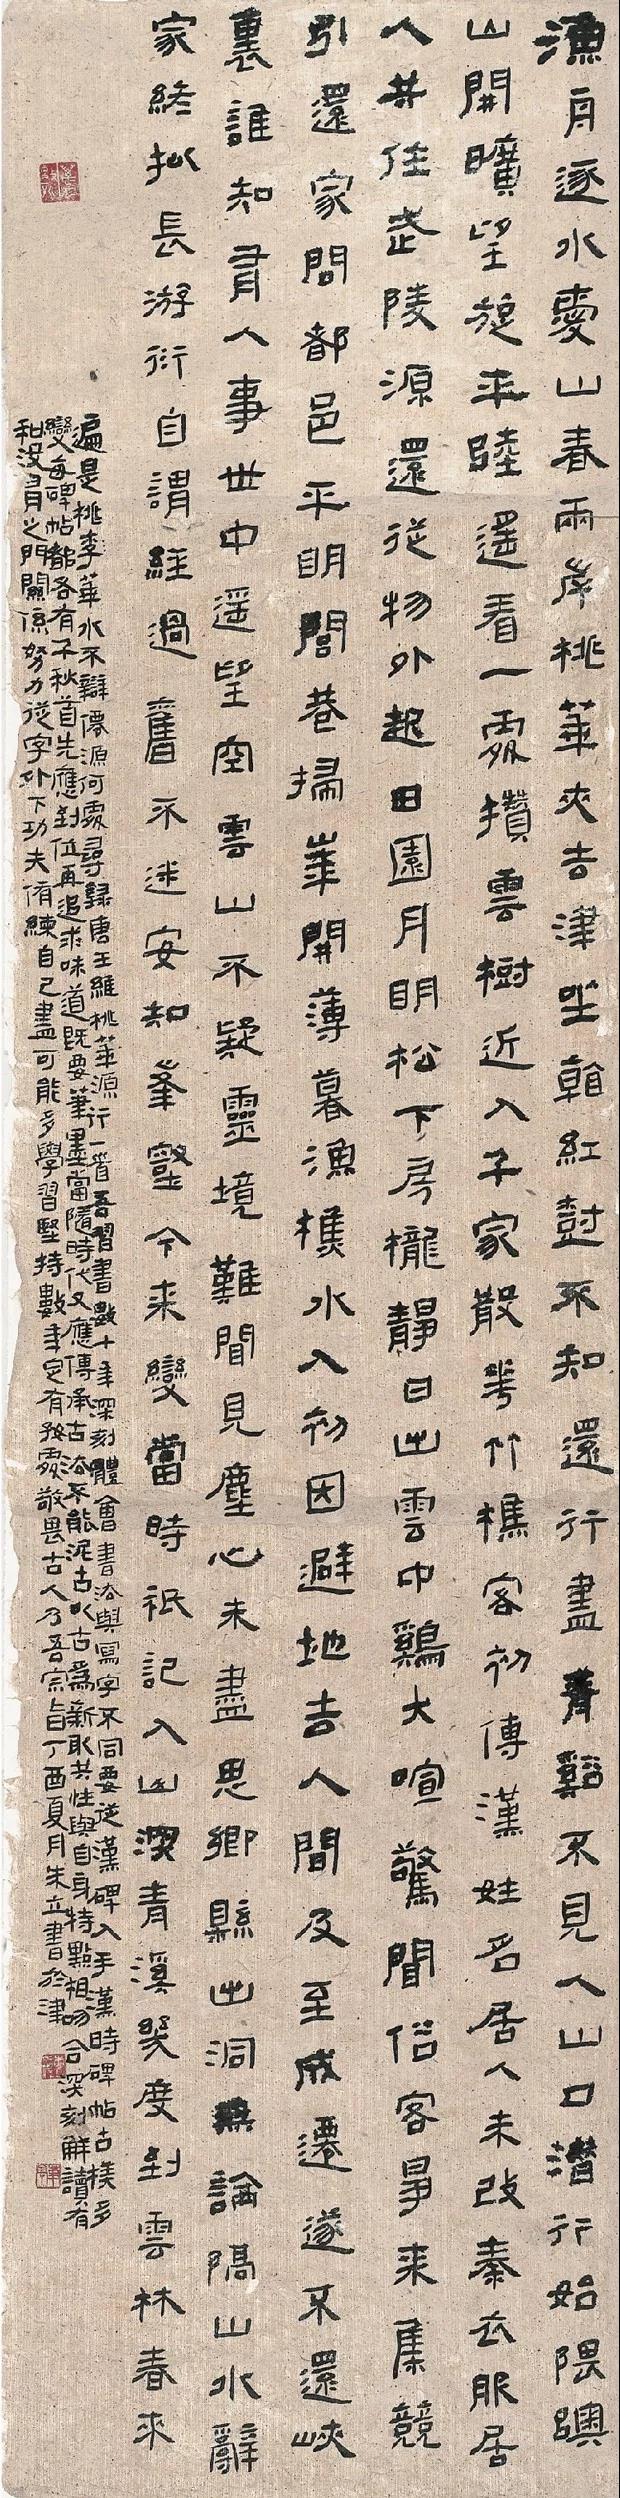 漁舟逐水愛山春兩岸桃華夾去津坐看紅樹不知還行盡青谿不見人山口潛行始隈隩
山開曠望旋平陸遙看一處攢雲樹近入千家散花竹樵客初傳漢姓名居人未改秦衣服居
人共住武陵源還從物外起田園月明松下房櫳靜日出雲中鷄犬喧驚聞俗客爭來集競
引還家問都邑平明閭巷掃華開薄暮漁樵水入初因避地去人間及至成遷遂不還峽
裏誰知有人事世中遥望空雲山不疑靈境難聞見塵心未盡思鄉縣出洞無論隔山水辭
家終擬長游衍自謂經過舊不迷安知峯壑今來變當時祇記入山深青溪幾度到雲林春來
遍是桃李華水不辯僊源何處尋録唐王維桃華源行一首吾習書數十年深刻體會書法與寫字不同要從漢碑入手漢時碑帖古樸多
變每碑帖都各有千秋首先應到位再追求味道既要筆墨當隨時代又應傳承古法不能泥古以古爲新取共性與自身特點相吻合深刻解讀有
和没有之門關係努力從字外下功夫脩練自己盡可能多學習堅持數年定有好處敬畏古人乃吾宗旨丁酉夏月朱立書於津